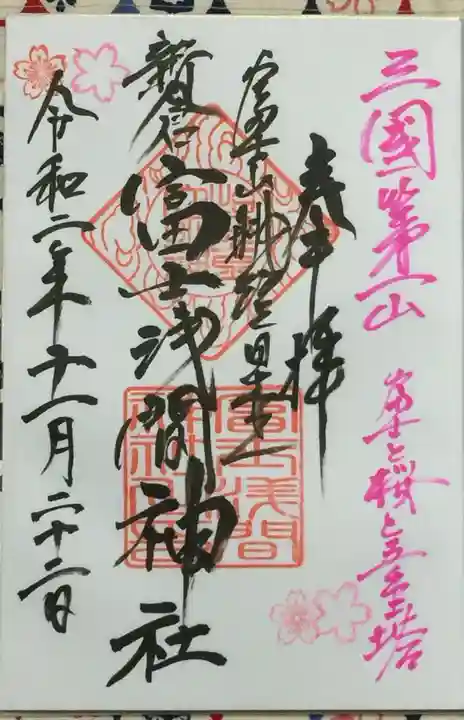 三國第一山
富士と桜と五重塔
奉拝
富士山
新倉富士浅間神社
富士浅間
神社
令和二年十一月二十二日